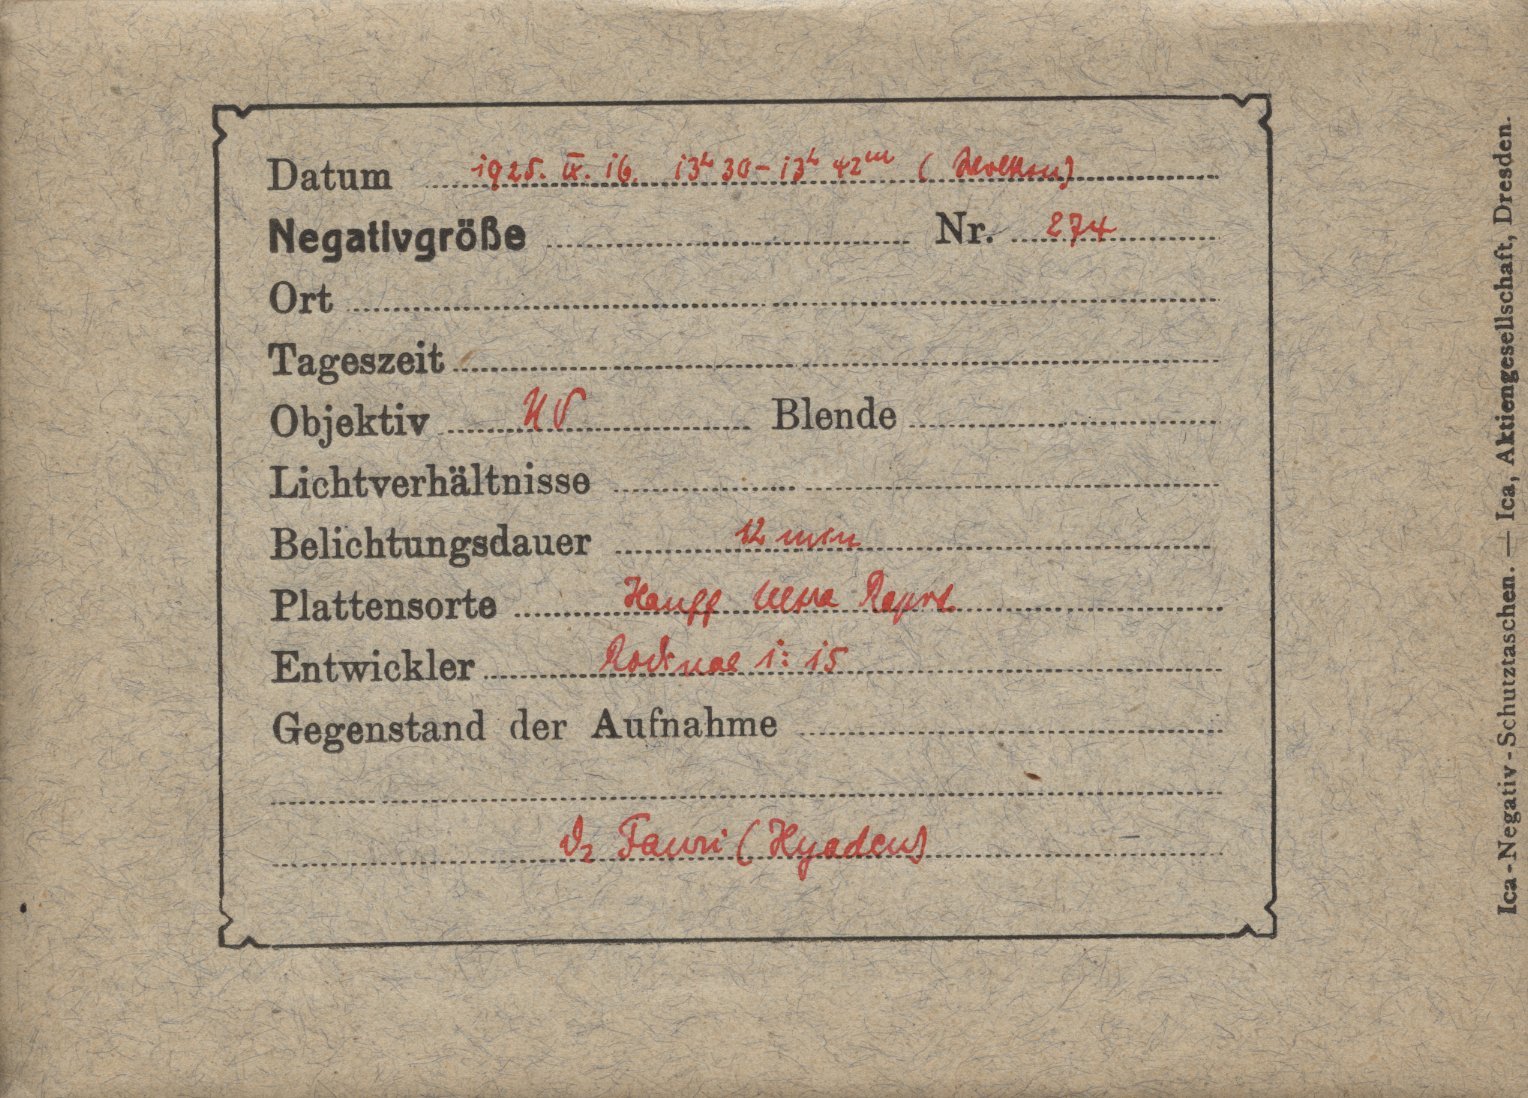 Datum 1925. IX. 16. 13h 30 – 13h 42m
Negativgröße Nr. 274
Ort
Tageszeit
Objektiv UV Blende
Lichtverhältnisse
Belichtungsdauer 12 min
Plattensorte Hauff Ultra Rapid
Entwickler Rodinal 1:15
Gegenstand der Aufnahme
ϑ2 Tauri (Hyaden)
Ica-Negativ-Schutztaschen. — Ica, Aktiengesellschaft, Dresden.